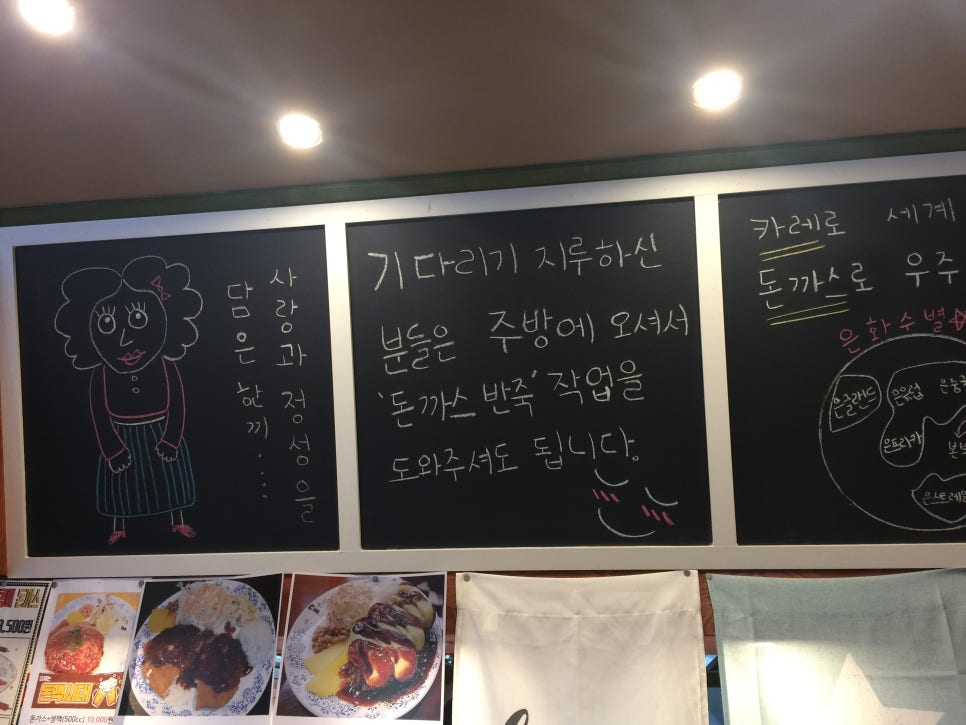 사랑과 정성을
담은 한끼....
기다리기 지루하신
분들은 주방에 오셔서
'돈까스 반죽' 작업을
도와주셔도 됩니다.
카레로 세계
돈까스로 우주
은화수 별
은글랜드
은유럽
은프리카
은스트레일
3,500원
돈맥시대
돈가스+생맥(500cc) 10,000원